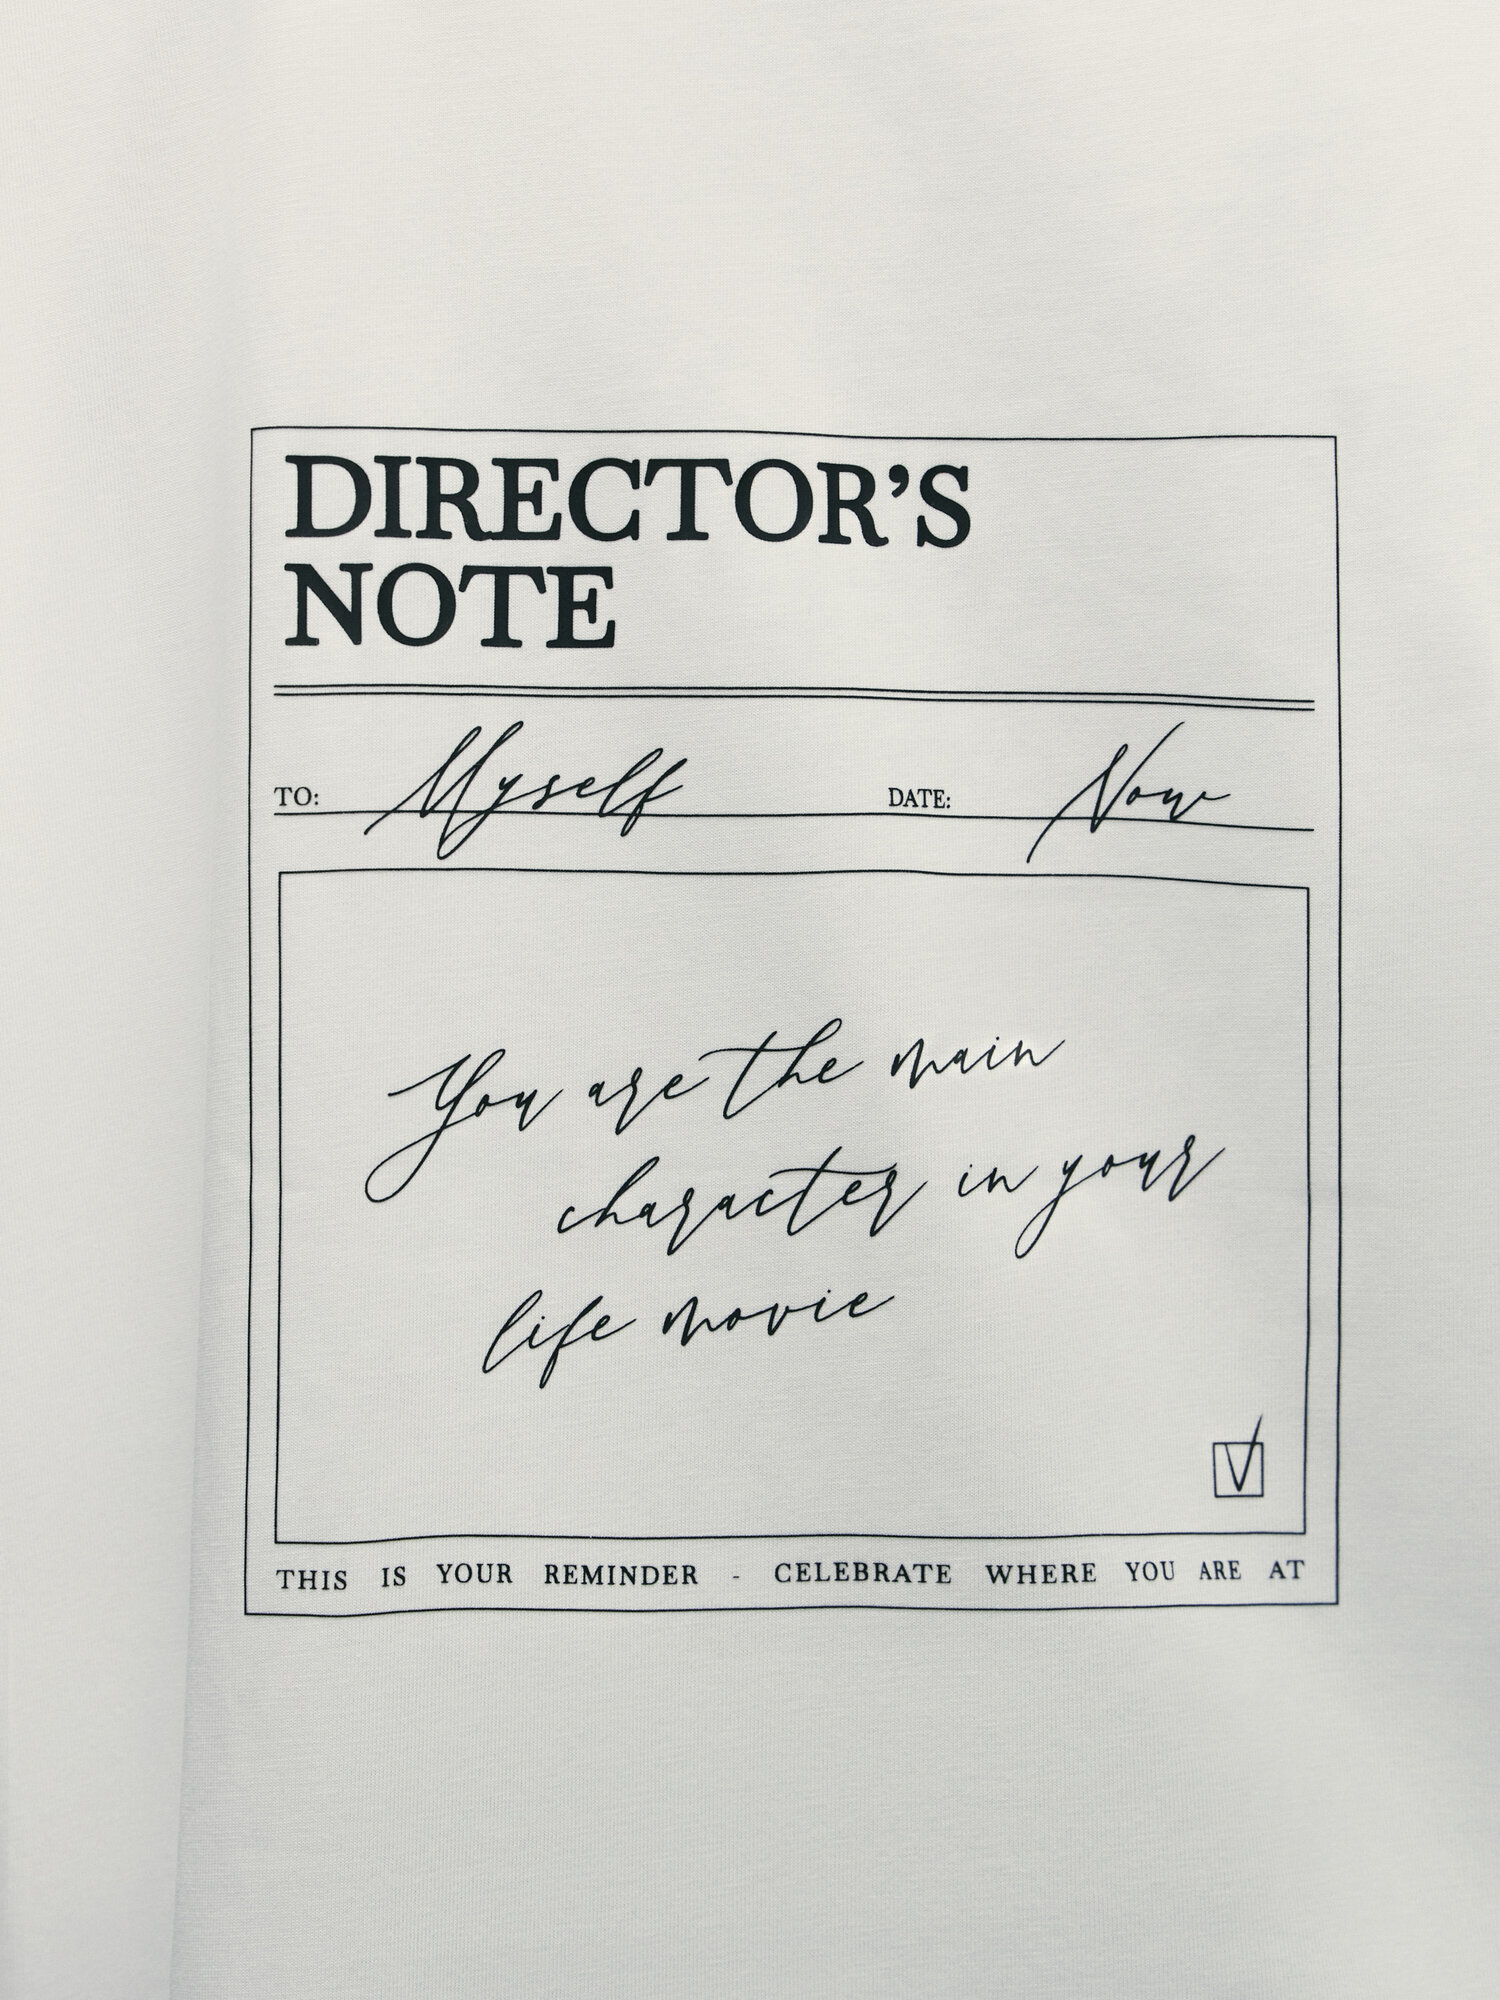 DIRECTOR'S
NOTE
TO: Myself DATE: Now
You are the main
character in your
life movie
THIS IS YOUR REMINDER - CELEBRATE WHERE YOU ARE AT